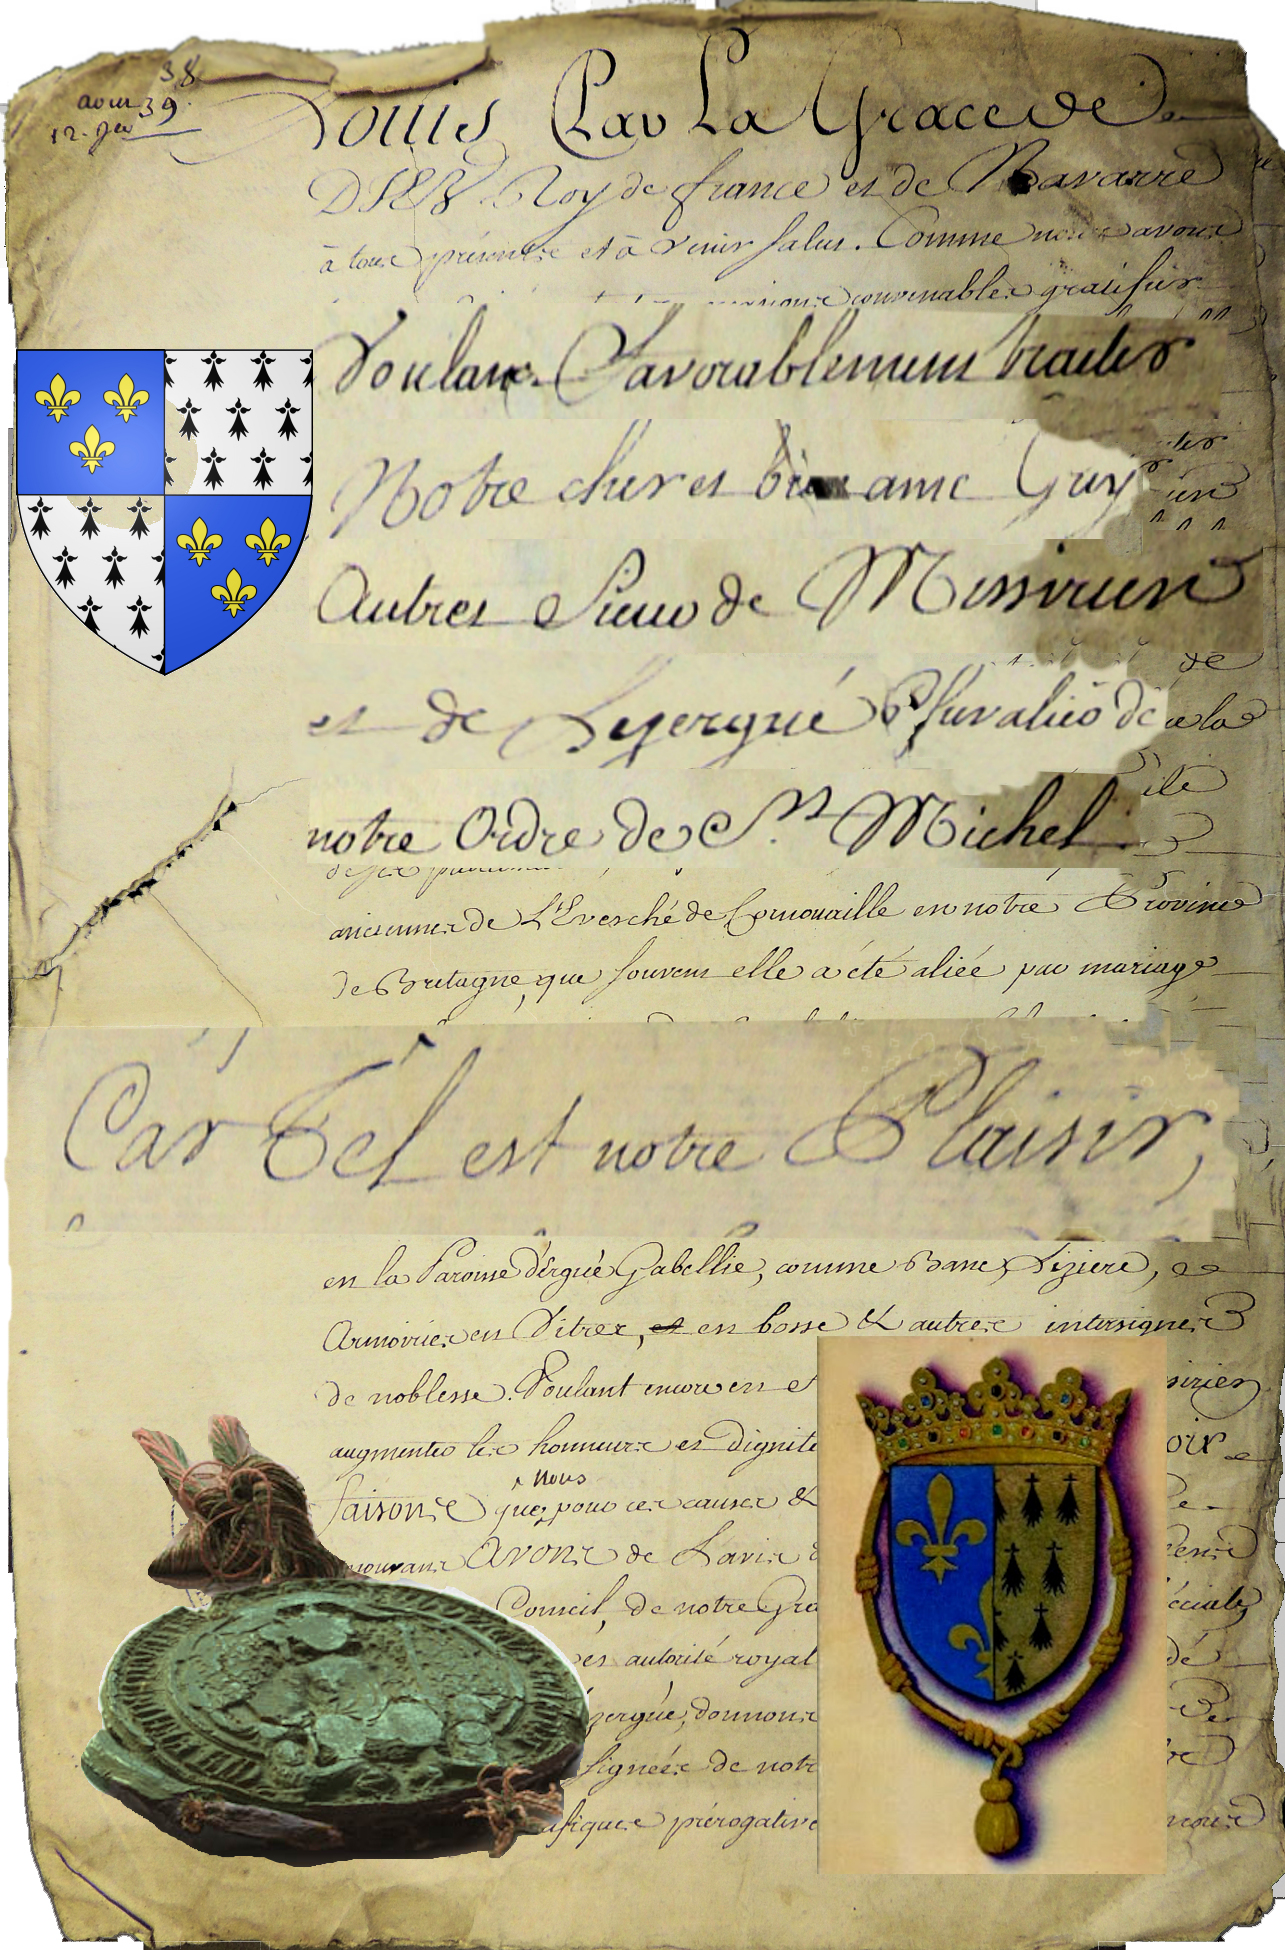 38
39
Louis Par La Grace de
DIEV Roy de france et de Navarre
à tous présents et à venir salut. Comme nous avons
convenables gratifier
Voulant Favorablement traiter
Notre cher et bien amé Guy
Autret Sieur de Missirien
et de Lezergué Chevalier de
notre Ordre de St Michel
ancienne de L'Evesché de Cornouaille en notre Province
de Bretagne, que souvent elle a été aliée par mariage
Car Tel est notre Plaisir,
en la Paroisse d'Ergué Gabellic, comme Banc, Liziere,
Armoiries en Vitres, en bosse & autres intersignes
de noblesse. Voulant encore en
augmenter les honneurs et dignité
nous
faisons que, pour ces causes &
mouvans avons de Lavis
Conseil, de notre
autorité royal
donnons
signées de notre
prérogative